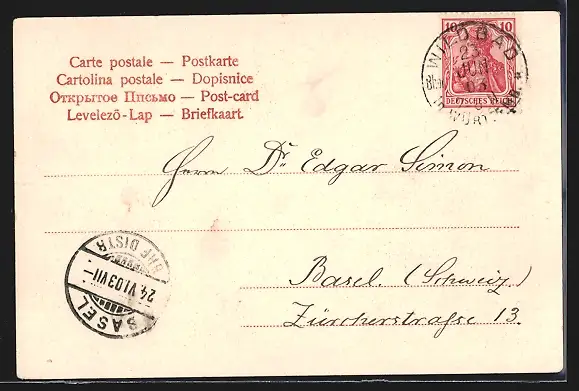 Carte postale — Postkarte
Cartolina postale — Dopisnice
Открытое Письмо — Post-card
Levelező-Lap — Briefkaart
10 10
DEUTSCHES REICH
WILDBAD
23
JUN
03
WÜRTTEMB.
Herrn Dr. Edgar Simon
Basel. (Schweiz)
Zürcherstraße 13.
BASEL
24.VI.03.VII—
BRF. DISTR.